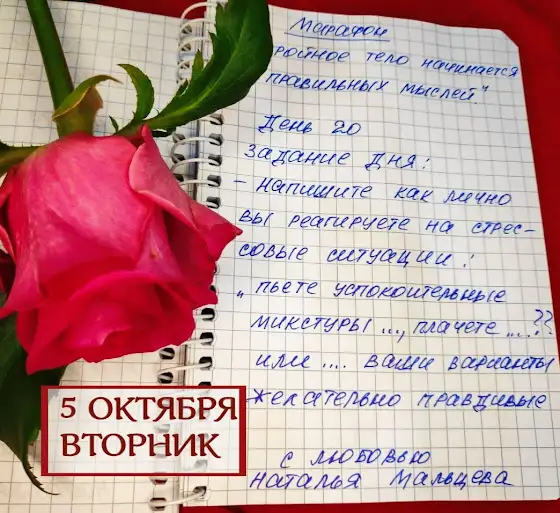 Марафон
ройное тело начинается
правильных мыслей"
День 20
Задание дня:
- Напишите как лично
вы реагируете на стрес-
совые ситуации:
" пьете успокоительные
микстуры ..., плачете ....??
или .... ваши варианты
желательно правдивые
с любовью
Наталья Мальцева
5 ОКТЯБРЯ
ВТОРНИК